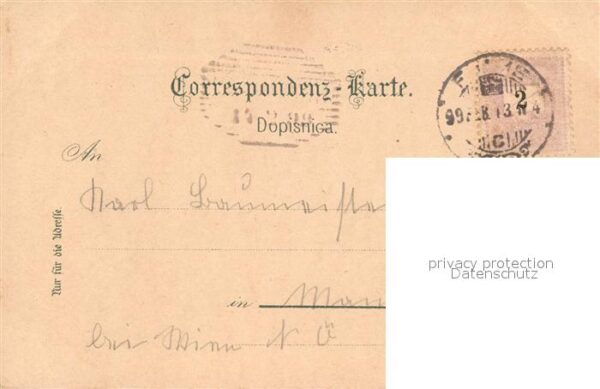 Correspondenz-Karte.
Dopisnica.
An
Karl Baumeiste
Nur für die Adresse
in Mau
bei Wien N Ö
2
99 FEB 13
privacy protection
Datenschutz